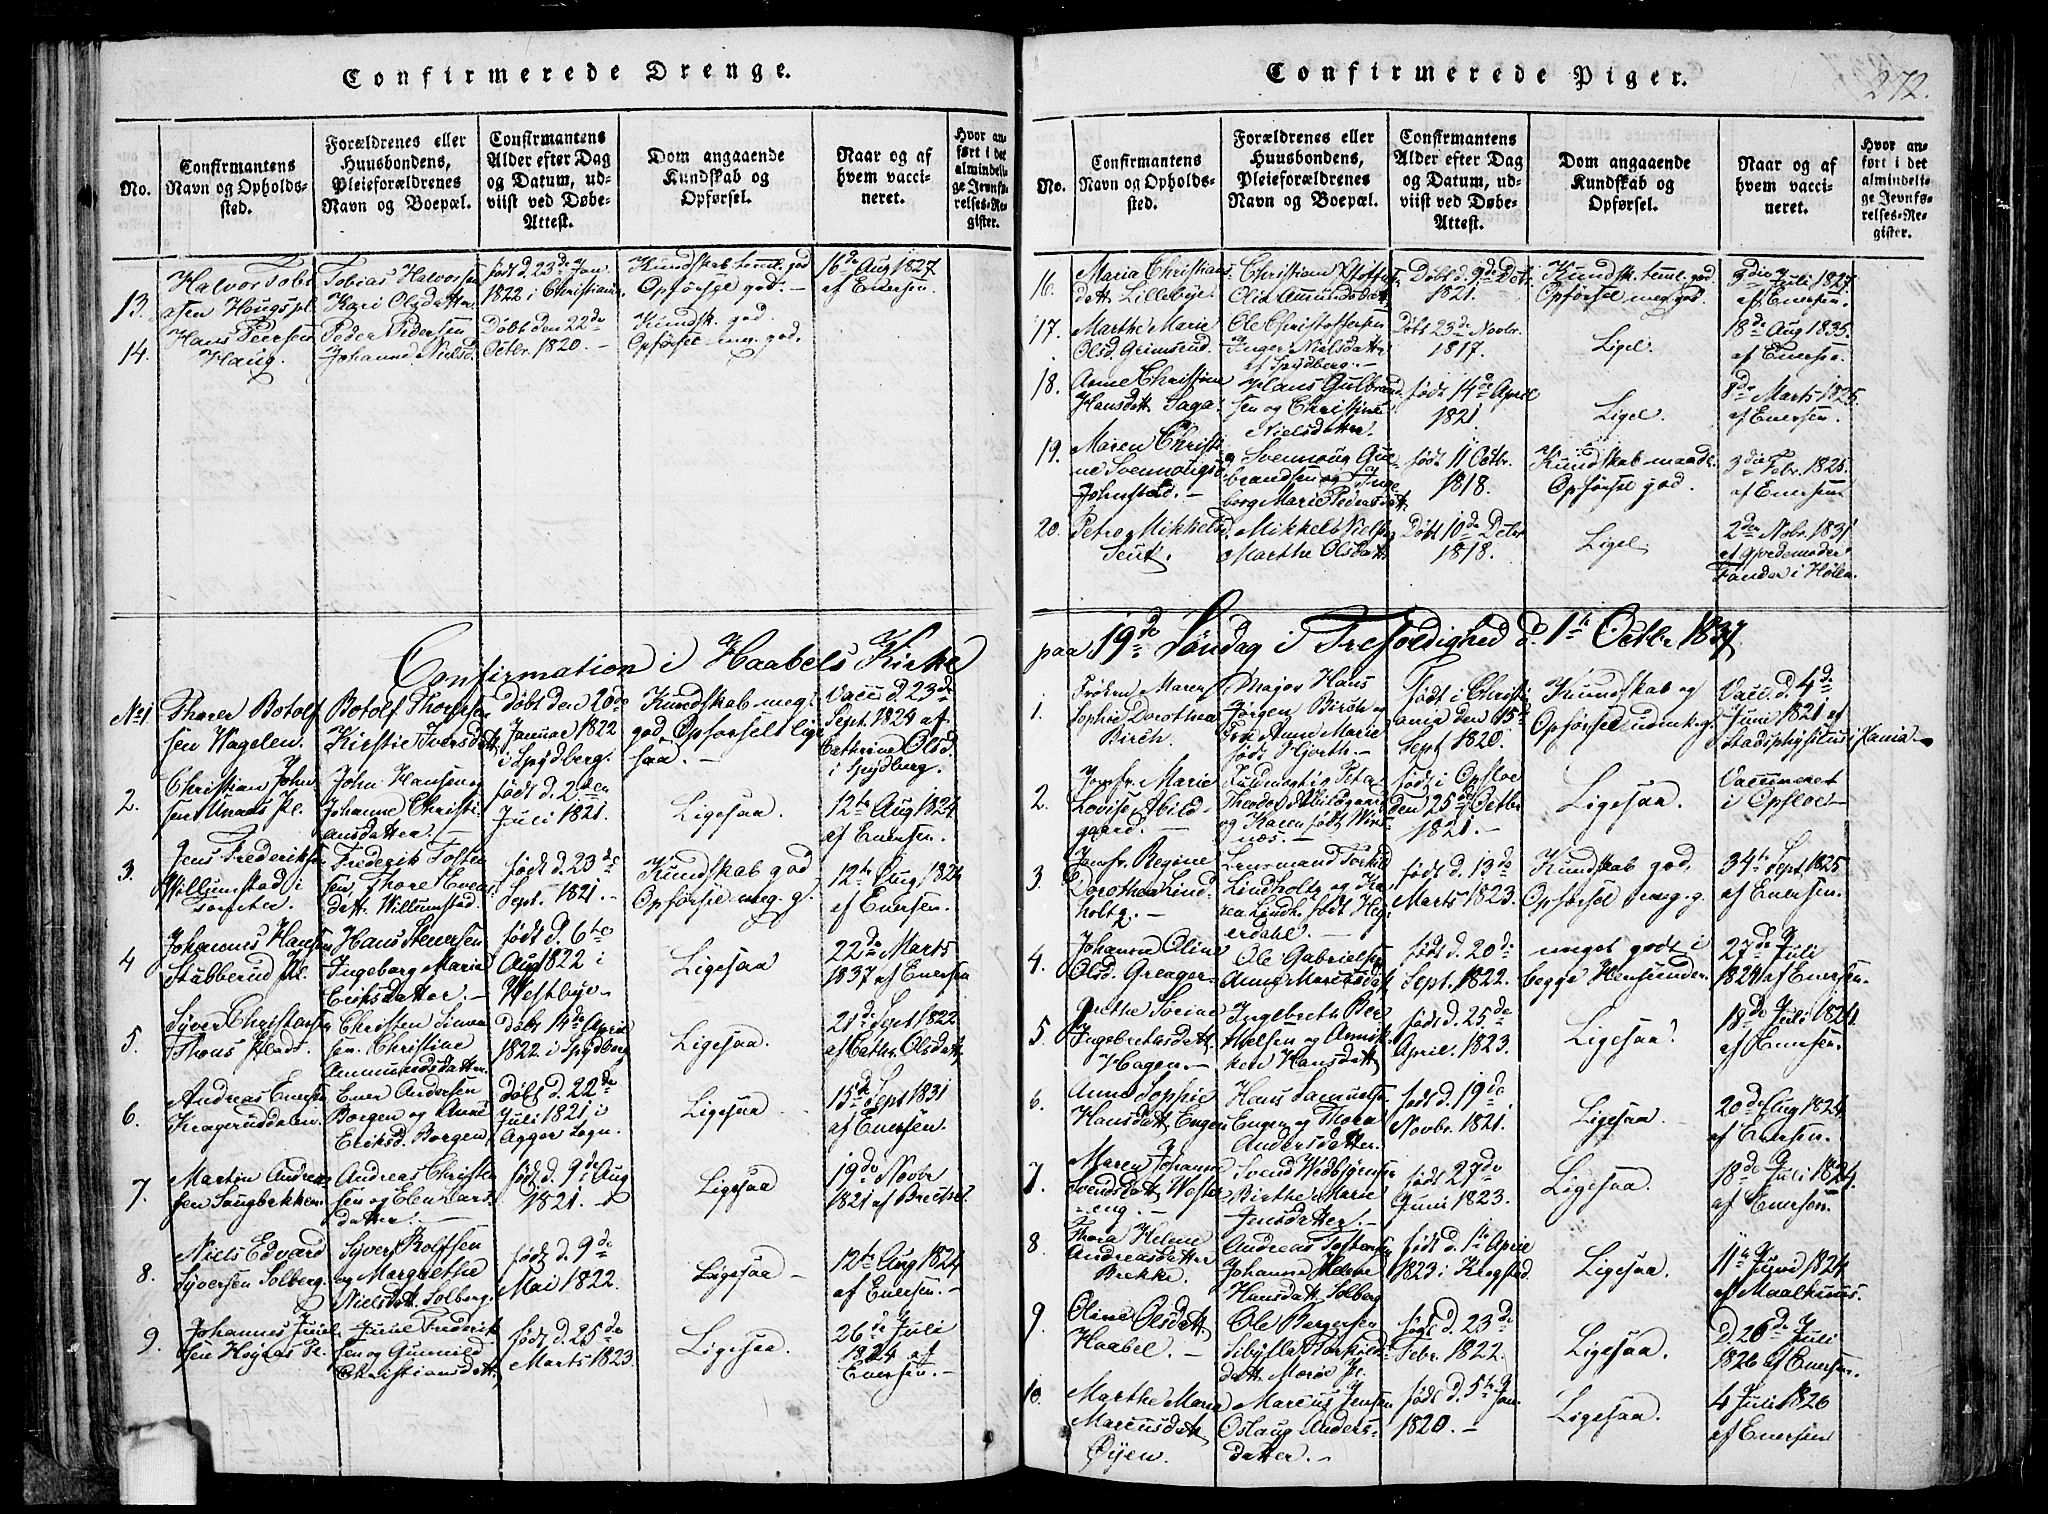 Confirmerede Drenge.
No.
Confirmantens
Navn og Opholds-
sted.
Forældrenes eller
Huusbondens,
Pleieforældrenes
Navn og Boepæl.
Confirmantens
Alder efter Dag
og Datum, ud-
viist ved Døbe-
Attest.
Dom angaaende
Kundskab og
Opførsel.
Naar og af
hvem vacci-
neret.
Hvor an-
ført i det
almindeli-
ge Jevnfø-
relses-Re-
gister.
13.
Halvor Tobi
asen Haugspl.
Tobias Halvorsen
Kari Olsdatter
født d. 23de Jan.
1822 i Christiania
Kundskab teml. god
Opførsel god. -
16de Aug 1827
af Enersen.
14.
Hans Peersen
Haug.
Peder Pedersen
Johanne Nielsd.
Døbt den 22de
Octbr. 1820. -
Kundsk. god.
Opførsel meg. god.
Confirmation i Haabels Kirke
No 1
Thorer Botolf
sen Wagelen.
Botolf Thorersen
Kirstie Iversdatt.
Døbt den 20de
Januar 1822
i Spydberg.
Kundskab meg.
god, Opførsel lige
saa. -
Vacc. d. 23de
Sept. 1824 af
Cathrine Olsd.
i Spydberg.
2.
Christian John
sen Unaas Pl.
John Hansen og
Johanne Christi-
ansdatter. -
født d. 2den
Juli 1821.
Ligesaa.
12te Aug 1824
af Enersen.
3.
Jens Frederiksen
Willumstad i
Tomter.
Frederik Tosten
sen Thore Evens
datt. Willumstad.
født d. 23de
Sept. 1821. -
Kundskab god
Opførsel meg. g.
12te Aug. 1824
af Enersen.
4
Johannes Hansen
Stabberud Pl.
Hans Steversen
Ingeborg Marie
Eriksdatter. -
født d. 6te
Aug 1822 i
Westbye. -
Ligesaa
22de Marts
1837 af Enersen
5.
Syver Christensen
Thons Plads.
Christen Simen
sen. Christiane
Ammundsdatter.
døbt 14de April
1822 i Spydberg
Ligesaa.
21de Sept 1822
af Cathr. Olsdatt.
6.
Andreas Enersen
Kragerüddalen.
Ener Andersen
Borgen og Anne
Eriksd. Borgen,
Døbt d. 22de
Juli 1821 i
Aggers Sogn.
Ligesaa
15de Sept 1831
af Enersen.
7.
Martin Andrea-
sen Saugbekken.
Andreas Christen
sen og Elen Lars
datter. -
født d. 9de Aug
1821. -
Ligesaa
19de Novbr
1821 af
8.
Niels Edvard
Syversen Solberg.
Syver Rolfsen
og Margrethe
Nielsdatt. Solberg.
født d. 9de
Mai 1822.
Ligesaa -
12te Aug 1824
af Enersen. -
9.
Johannes Juuel
sen Højaas Pl.
Juul Frederik
sen og Gunnild
Christiansdatt.
født d. 25de
Marts 1823.
Ligesaa.
26de Juli
1824 af
Enersen. -
Confirmerede Piger.
272.
No.
Confirmantens
Navn og Opholds-
sted.
Forældrenes eller
Huusbondens,
Pleieforældrenes
Navn og Boepæl.
Confirmantens
Alder efter Dag
og Datum, ud-
viist ved Døbe-
Attest.
Dom angaaende
Kundskab og
Opførsel.
Naar og af
hvem vacci-
neret.
Hvor an-
ført i det
almindeli-
ge Jevnfø-
relses-Re-
gister.
16.
Maria Christians
datt. Lillebye.
Christian
Olia Ammundsdatt
Døbt d. 9de Octbr
1821.
Kundsk. teml. god.
Opførsel meg. god.
3die Juli 1827.
af Enersen.
17.
Marthe Marie
Olsd. Grimsrud.
Ole Christoffersen
Inger Nielsdatter
af Spydberg. -
Døbt 23de Novbr.
1817.
Ligel.
18de Aug 1835.
af Enersen.
18.
Anne Christine
Hansdatt. Saga.
Hans Gulbrand
sen og Christine
Nielsdatter.
født 14de April
1821.
Ligel.
8de Marts 1825.
af Enersen.
19.
Maren Christi
ne Svennoügsd
Johnstad. -
Svennoüg Gul
brandsen og Inge
borg Marie Pedersdatt.
født 11 Octbr.
1818.
Kundskab maadel.
Opførsel god.
3die Febr. 1825.
af Enersen
20.
Petre Mikkelsd.
Mikkel Nielsen
Marthe Olsdatt
Døbt 10de Octbr
1818.
Ligel.
2den Nobr. 1831
af Gjordemoder
Tander i Hølen.
paa 19de Søndag i Trefoldighed d. 1te Octbr. 1837.
1.
Frøken Maren
Sophie Dorothea
Birch.
Major Hans
Jørgen Birch og
Frue Anne Marie
født Hjorth. -
Født i Christi
ania den 15de
Sept 1820.
Kundskab og
Opførsel udmk. g.
Vacc. d. 4de
Juni 1821 af
Stadsphysikus i Xania. -
2.
Jomfr. Marie
Lovise Abild-
gaard. -
Fuldmægtig Peter
Theodor Abildgaard
og Karen født Wir-
næs. -
født i Opsloe
den 25de Octbr
1821. -
Ligesaa.
Vaccineret
i Opsloe -
3.
Jomfr. Regine
Dorothea Lind
holtz. -
Lensmand Torkild
Lindholtz og Ka-
ren Lindh. født Hej-
erdahl.
født d. 13de
Marts 1823.
Kundskab god,
Opførsel meg. g.
34te Sept. 1825
af Enersen.
4.
Johanne Oline
Olsd. Greager -
Ole Gabrielsen
Anne Marensdatt
født d. 20de
Sept. 1822.
meget godt i
begge Hensender.
27de Juli
1824 af Enersen.
5.
Grethe Sveine
Ingebretsdatt
Hagen. -
Ingebreth Ber
thelsen og Annik
ken Hansdatt
født d. 25de
April 1823.
Ligesaa.
18de Juli 1824.
af Enersen.
6.
Anne Sophie
Hansdatt Engen
Hans Samuelsen
Engen og Thora
Andersdatter.
født d. 19de
Novbr. 1821.
Ligesaa.
20de Aug 1824.
af Enersen.
7.
Maren Johanne
Svendsdatt Wester
eng.
Svend Wedbjørnsen
Birthe Marie
Jensdatter. -
født 27de
Juni 1823.
Ligesaa.
18de Juli 1824.
af Enersen.
8.
Thora Helene
Andreasdatter
Brekke.
Andreas Tostensen
Johanne Helene
Hansdatt. Solberg
født d. 1te April
1823 i Kragstad.
Ligesaa.
11te Juni 1824
af Maalkunns.
9.
Oline Olsdatt
Haabel. -
Ole Borgersen
Sibylla Torkilds
datt. Moröe Pl.
født d. 23de
Febr. 1822.
Ligesaa.
D 26de Juli
1826 af Enersen.
10.
Marthe Maria
Marcusdatt
Øÿen.
Marcus Jensen
Oslaug Anders-
datter. -
født d. 5te Jan.
1820. -
Ligesaa.
4 Juli 1826
af Enersen